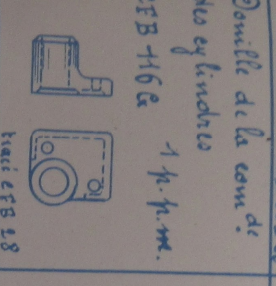 Douille de la com de
des cylindres
EFB 116 a
1 p.p.m.
tracé EFB 28